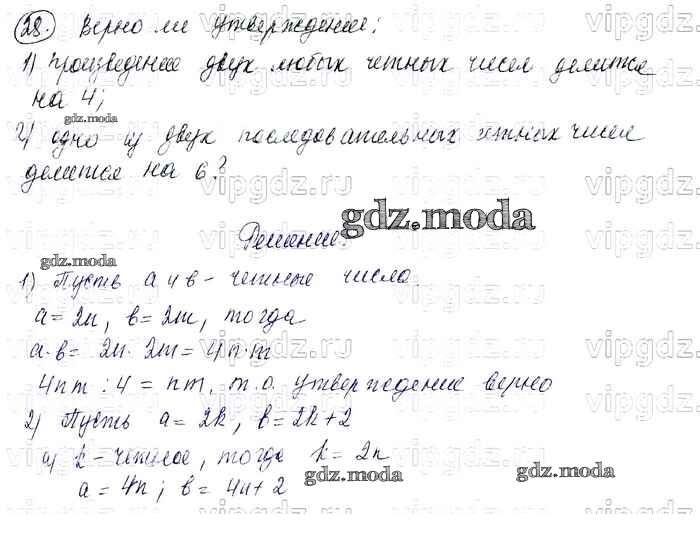 28. Верно ли утверждение:
1) Произведение двух любых четных чисел делится
на 4;
gdz.moda
2) одно из двух последовательных четных чисел
делится на 6?
gdz.moda
Решение:
gdz.moda
1) Пусть a и b - четные числа.
a = 2n, b = 2m, тогда
a·b = 2n · 2m = 4n·m
4nm : 4 = nm, т.о. утверждение верно
2) Пусть a = 2k, b = 2k+2
a) k - четное, тогда k = 2n
gdz.moda gdz.moda
a = 4n; b = 4n+2
vipgdz.ru